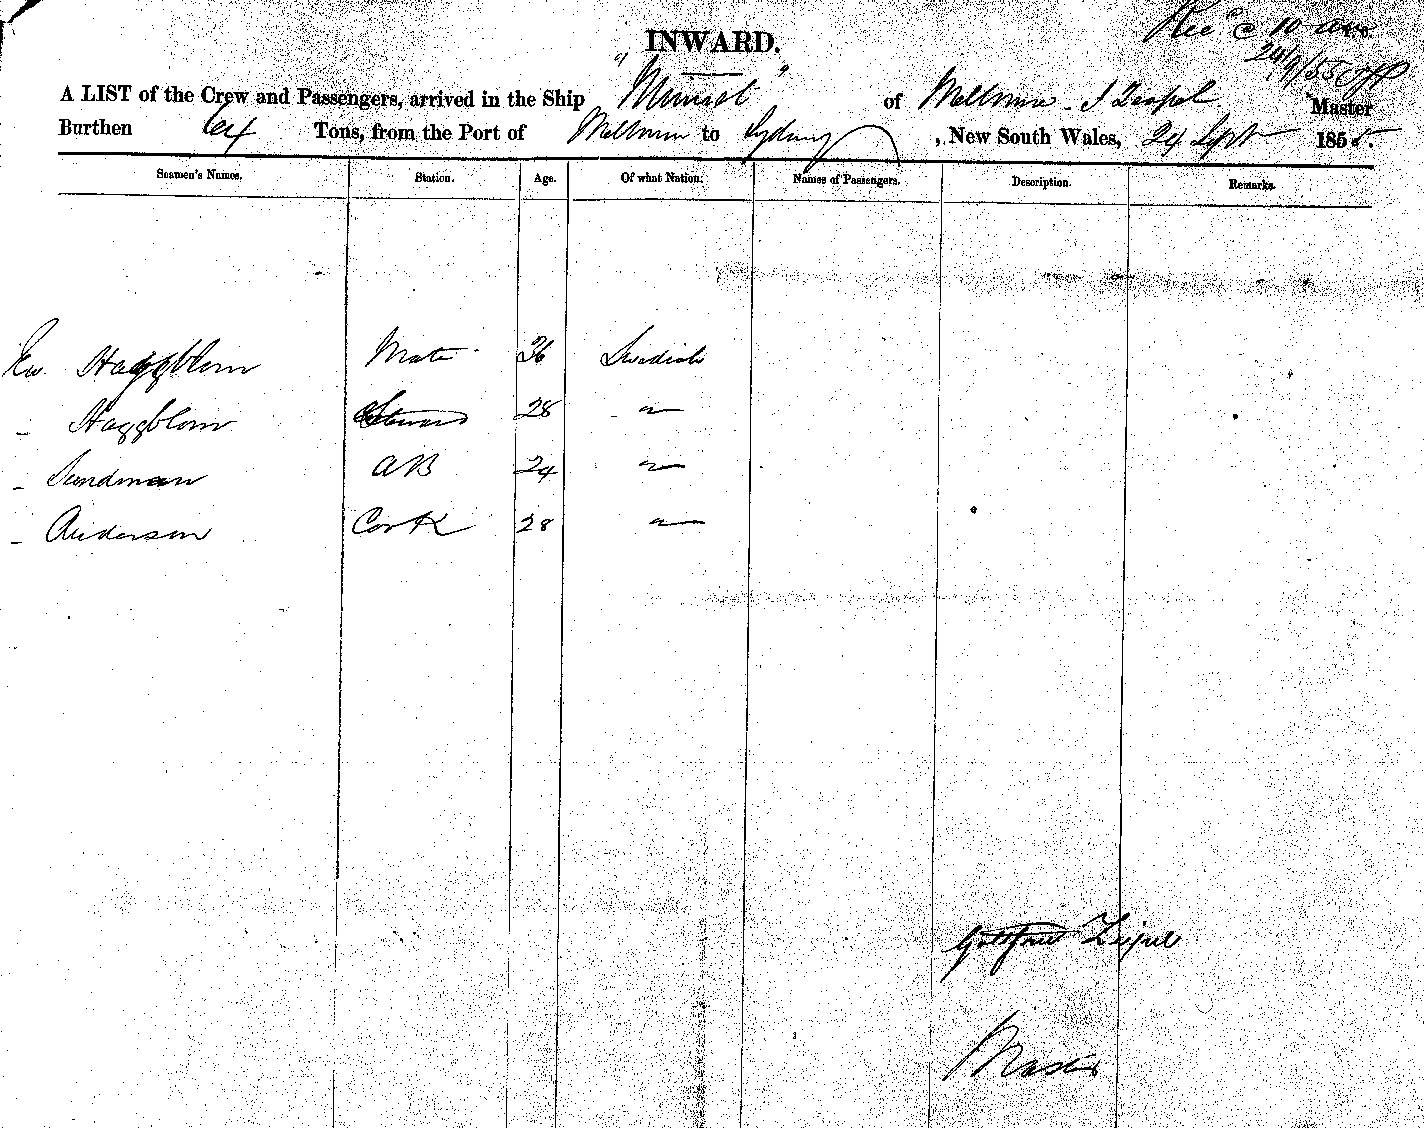 INWARD.
Rec'd 10 am
24/9/55
A LIST of the Crew and Passengers, arrived in the Ship of Melbourne - Master
Burthen 64 Tons, from the Port of Melbourne to Sydney, New South Wales, 24 Sept 1855.
Seamen's Names. Station. Age. Of what Nation. Names of Passengers. Description. Remarks.
Haggblom Mate 36 Swedish
- Haggblom Steward 28 "
- Sundman AB 24 "
- Anderson Cook 28 "
Gottfried
Master